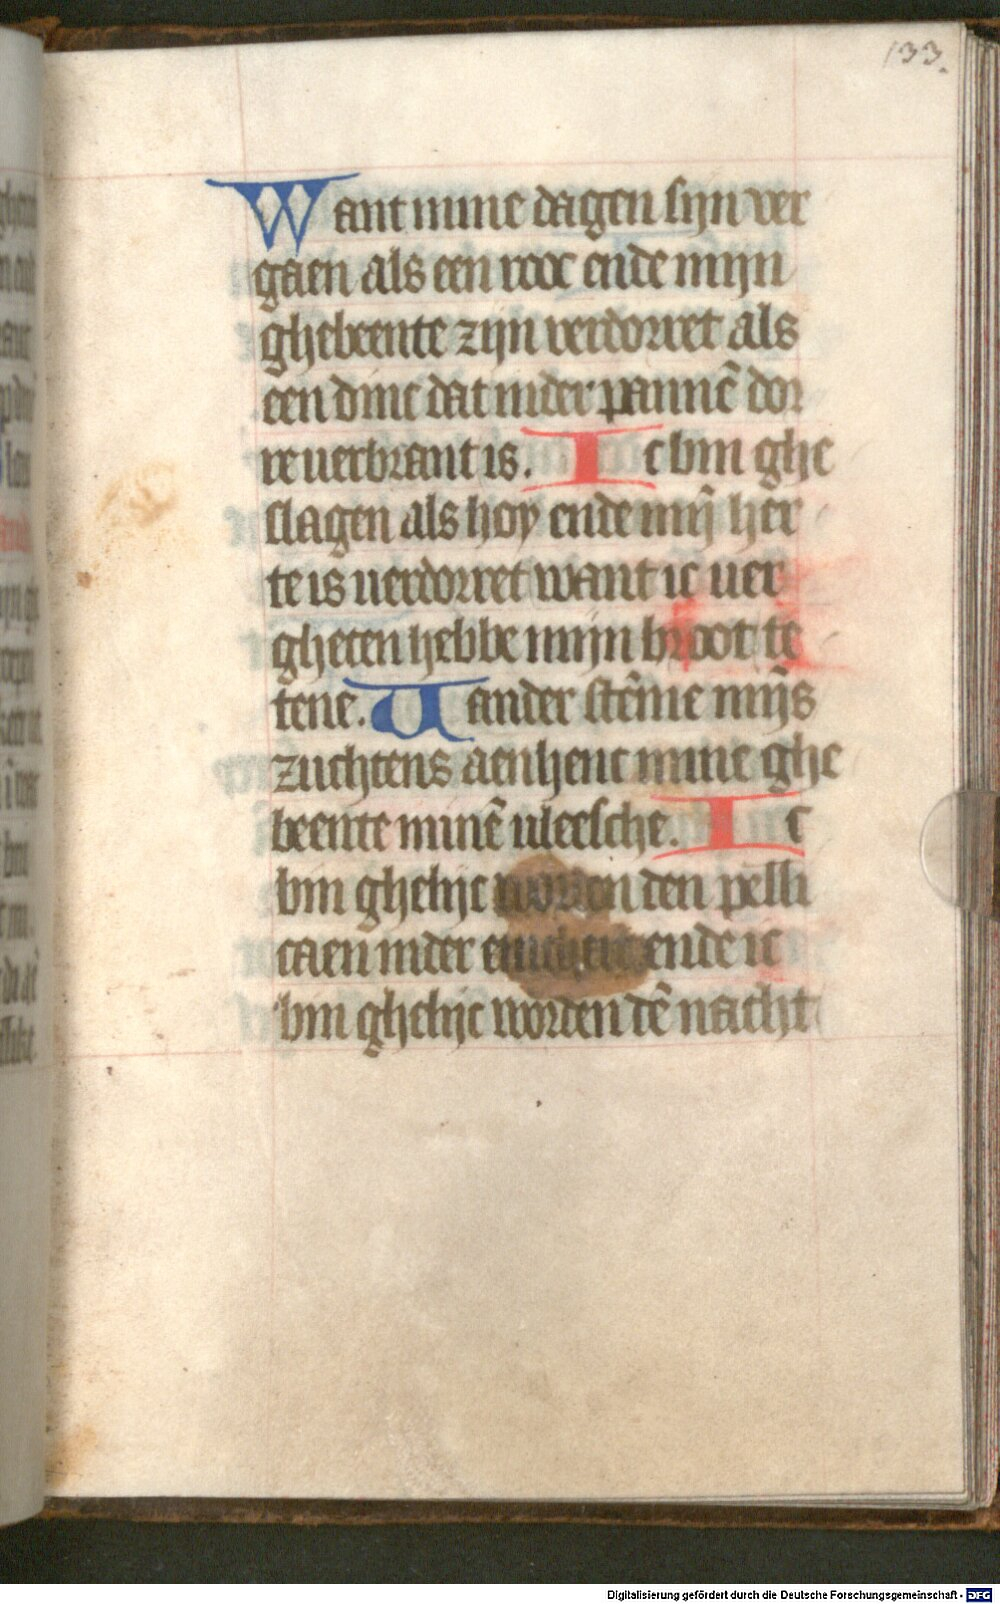 133.
Want mine dagen sijn ver
gaen als een rooc ende mijn
ghebeente zijn verdorret als
een dinc dat in der pannē dor
re uerbrant is. Ic bin ghe
slagen als hoy ende mij̄ her
te is uerdorret want ic uer
gheten hebbe mijn broot te
tene. Uander stēme mij̄s
zuchtens aenhenc mine ghe
beente minē uleesche. Ic
bin ghelijc worden den pelli
caen in der enicheit ende ic
bin ghelijc worden dē nacht
Digitalisierung gefördert durch die Deutsche Forschungsgemeinschaft - DFG